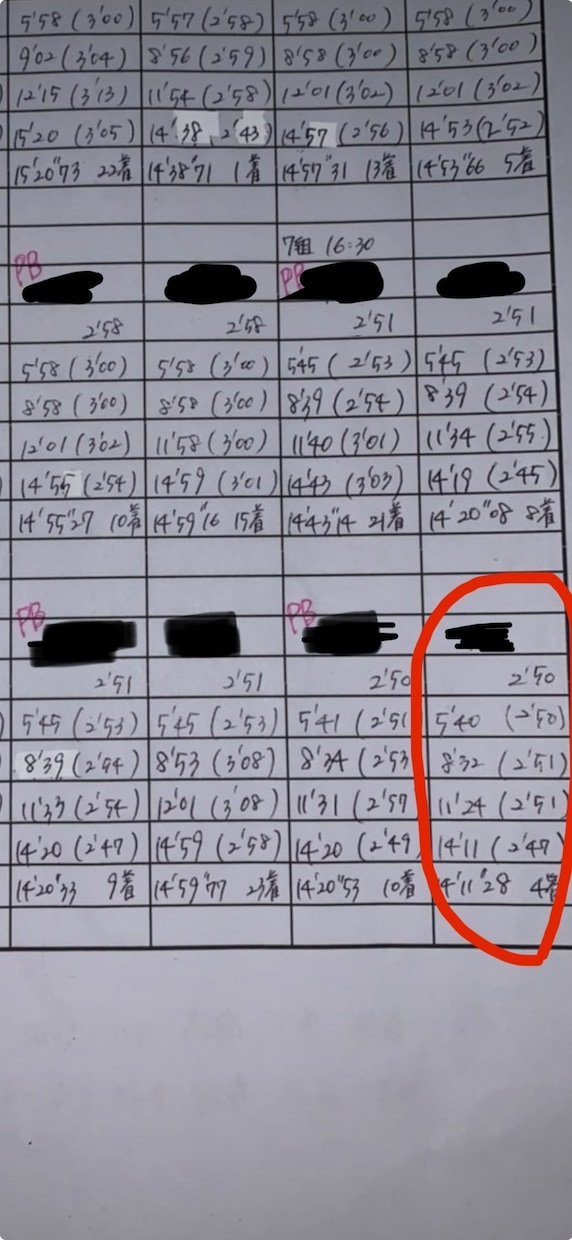 5'58 (3'00) 5'57 (2'58) 5'58 (3'00) 5'58 (3'00)
9'02 (3'04) 8'56 (2'59) 8'58 (3'00) 8'58 (3'00)
12'15 (3'13) 11'54 (2'58) 12'01 (3'02) 12'01 (3'02)
15'20 (3'05) 14'38 2'43) 14'57 (2'56) 14'53 (2'52)
15'20"73 22着 14'38"71 1着 14'57"31 13着 14'53"66 5着
7組 16:30
PB PB
2'58 2'58 2'51 2'51
5'58 (3'00) 5'58 (3'00) 5'45 (2'53) 5'45 (2'53)
8'58 (3'00) 8'58 (3'00) 8'39 (2'54) 8'39 (2'54)
12'01 (3'02) 11'58 (3'00) 11'40 (3'01) 11'34 (2'55)
14'55 (2'54) 14'59 (3'01) 14'43 (3'03) 14'19 (2'45)
14'55"27 10着 14'59"16 15着 14'43"14 21着 14'20"08 8着
PB PB
2'51 2'51 2'50 2'50
5'45 (2'53) 5'45 (2'53) 5'41 (2'51) 5'40 (2'50)
8'39 (2'54) 8'53 (3'08) 8'34 (2'53 8'32 (2'51)
11'33 (2'54) 12'01 (3'08) 11'31 (2'57 11'24 (2'51)
14'20 (2'47) 14'59 (2'58) 14'20 (2'49 14'11 (2'47
14'20"33 9着 14'59"77 23着 14'20"53 10着 14'11"28 4着